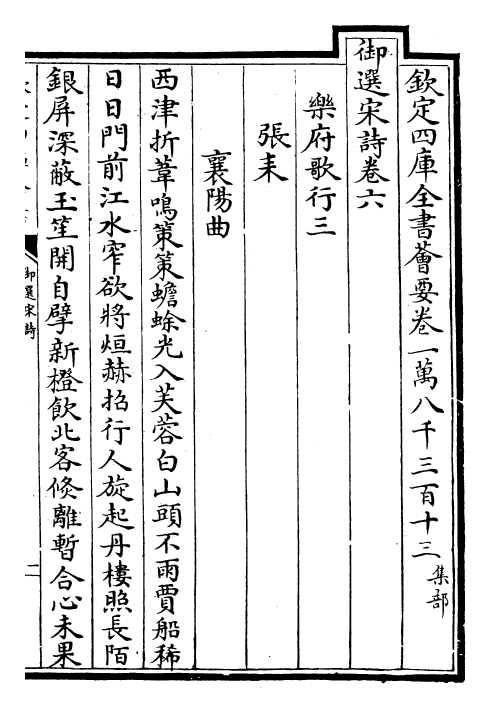 欽定四庫全書薈要卷一萬八千三百十三集部
御選宋詩卷六
樂府歌行三
張耒
襄陽曲
西津折葦鳴策策蟾蜍光入芙蓉白山頭不雨賈船稀
日日門前江水窄欲將烜赫招行人旋起丹樓照長陌
銀屏深蔽玉笙開自擘新橙飲北客倐離暫合心未果
御選宋詩